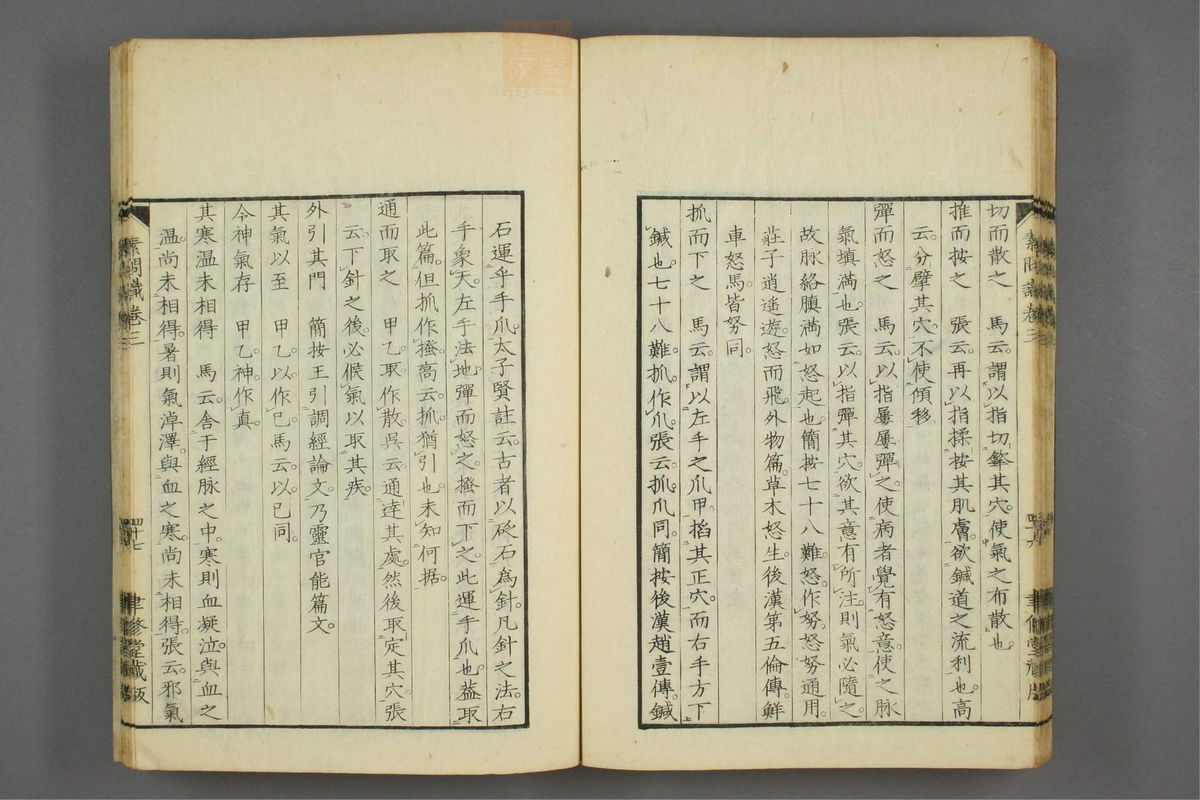 切而散之　馬云。謂以指切撆其穴。使氣之布散也
推而按之　張云。再以指揉按其肌膚。欲鍼道之流利也。高
云。分擘其穴。不使傾移
彈而怒之　馬云。以指屢屢彈之。使病者覺有怒意。使之脉
氣填滿也。張云。以指彈其穴。欲其意有所注。則氣必隨之。
故脉絡䐜滿如怒起也。簡按七十八難。怒作努。怒努通用。
莊子逍遙遊。怒而飛。外物篇。草木怒生。後漢第五倫傳鮮
車怒馬。皆努同。
抓而下之　馬云。謂以左手之爪甲。掐其正穴。而右手方下
鍼也。七十八難。抓作爪。張云。抓爪同。簡按後漢趙壹傳。鍼
石運乎手爪。太子賢註云。古者以砭石為針。凡針之法。右
手象天。左手法地。彈而怒之。搔而下之。此運手爪也。蓋取
此篇。但抓作搔。高云。抓猶引也。未知何据。
通而取之　甲乙。取作散。吳云。通達其處。然後取定其穴。張
云。下針之後。必候氣以取其疾。
外引其門　簡按王引調經論文。乃靈官能篇文
其氣以至　甲乙。以作已。馬云。以已同。
令神氣存　甲乙。神作真。
其寒温未相得　馬云。舍于經脉之中。寒則血凝泣。與血之
温。尚未相得。暑則氣淖澤。與血之寒。尚未相得。張云。邪氣
素問識卷三
四十七
聿修堂藏版